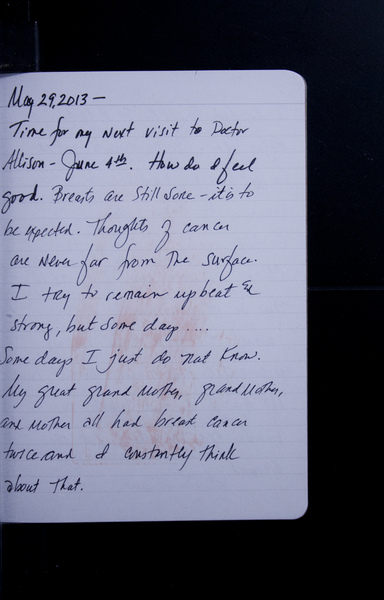 May 29, 2013 -
Time for my next visit to Doctor
Allison - June 4th. How do I feel
good. Breasts are still sore - it is to
be expected. Thoughts of cancer
are never far from the surface.
I try to remain upbeat &
strong, but some days ....
Some days I just do not know.
My great grand mother, grandmother,
and mother all had breast cancer
twice and I constantly think
about that.